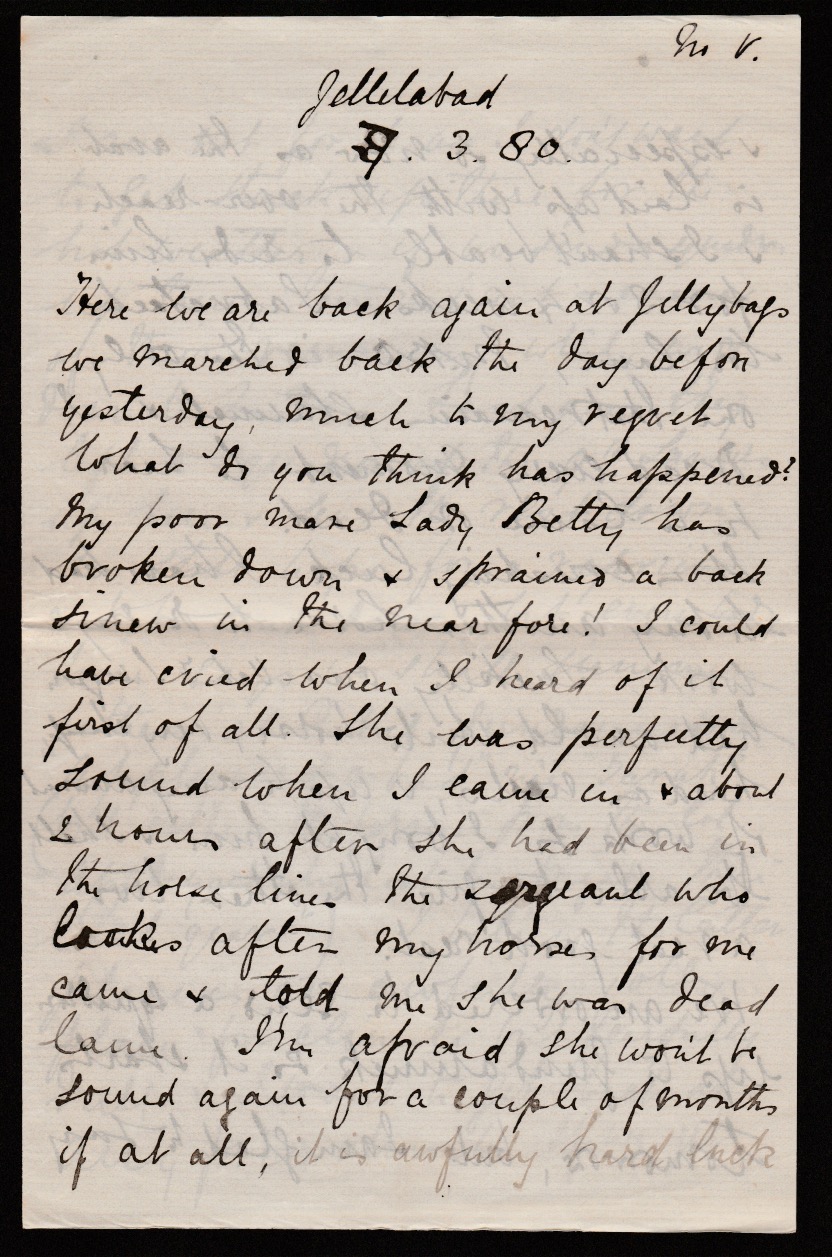 No V.
Jellelabad
9. 3. 80.
Here we are back again at Jellybags
we marched back the day before
yesterday, much to my regret
What do you think has happened?
My poor mare Lady Betty has
broken down & sprained a back
sinew in the near fore! I could
have cried when I heard of it
first of all. She was perfectly
sound when I came in & about
2 hours after she had been in
the horse lines the sergeant who
looks after my horses for me
came & told me she was dead
lame. I'm afraid she won't be
sound again for a couple of months
if at all, it is awfully hard luck